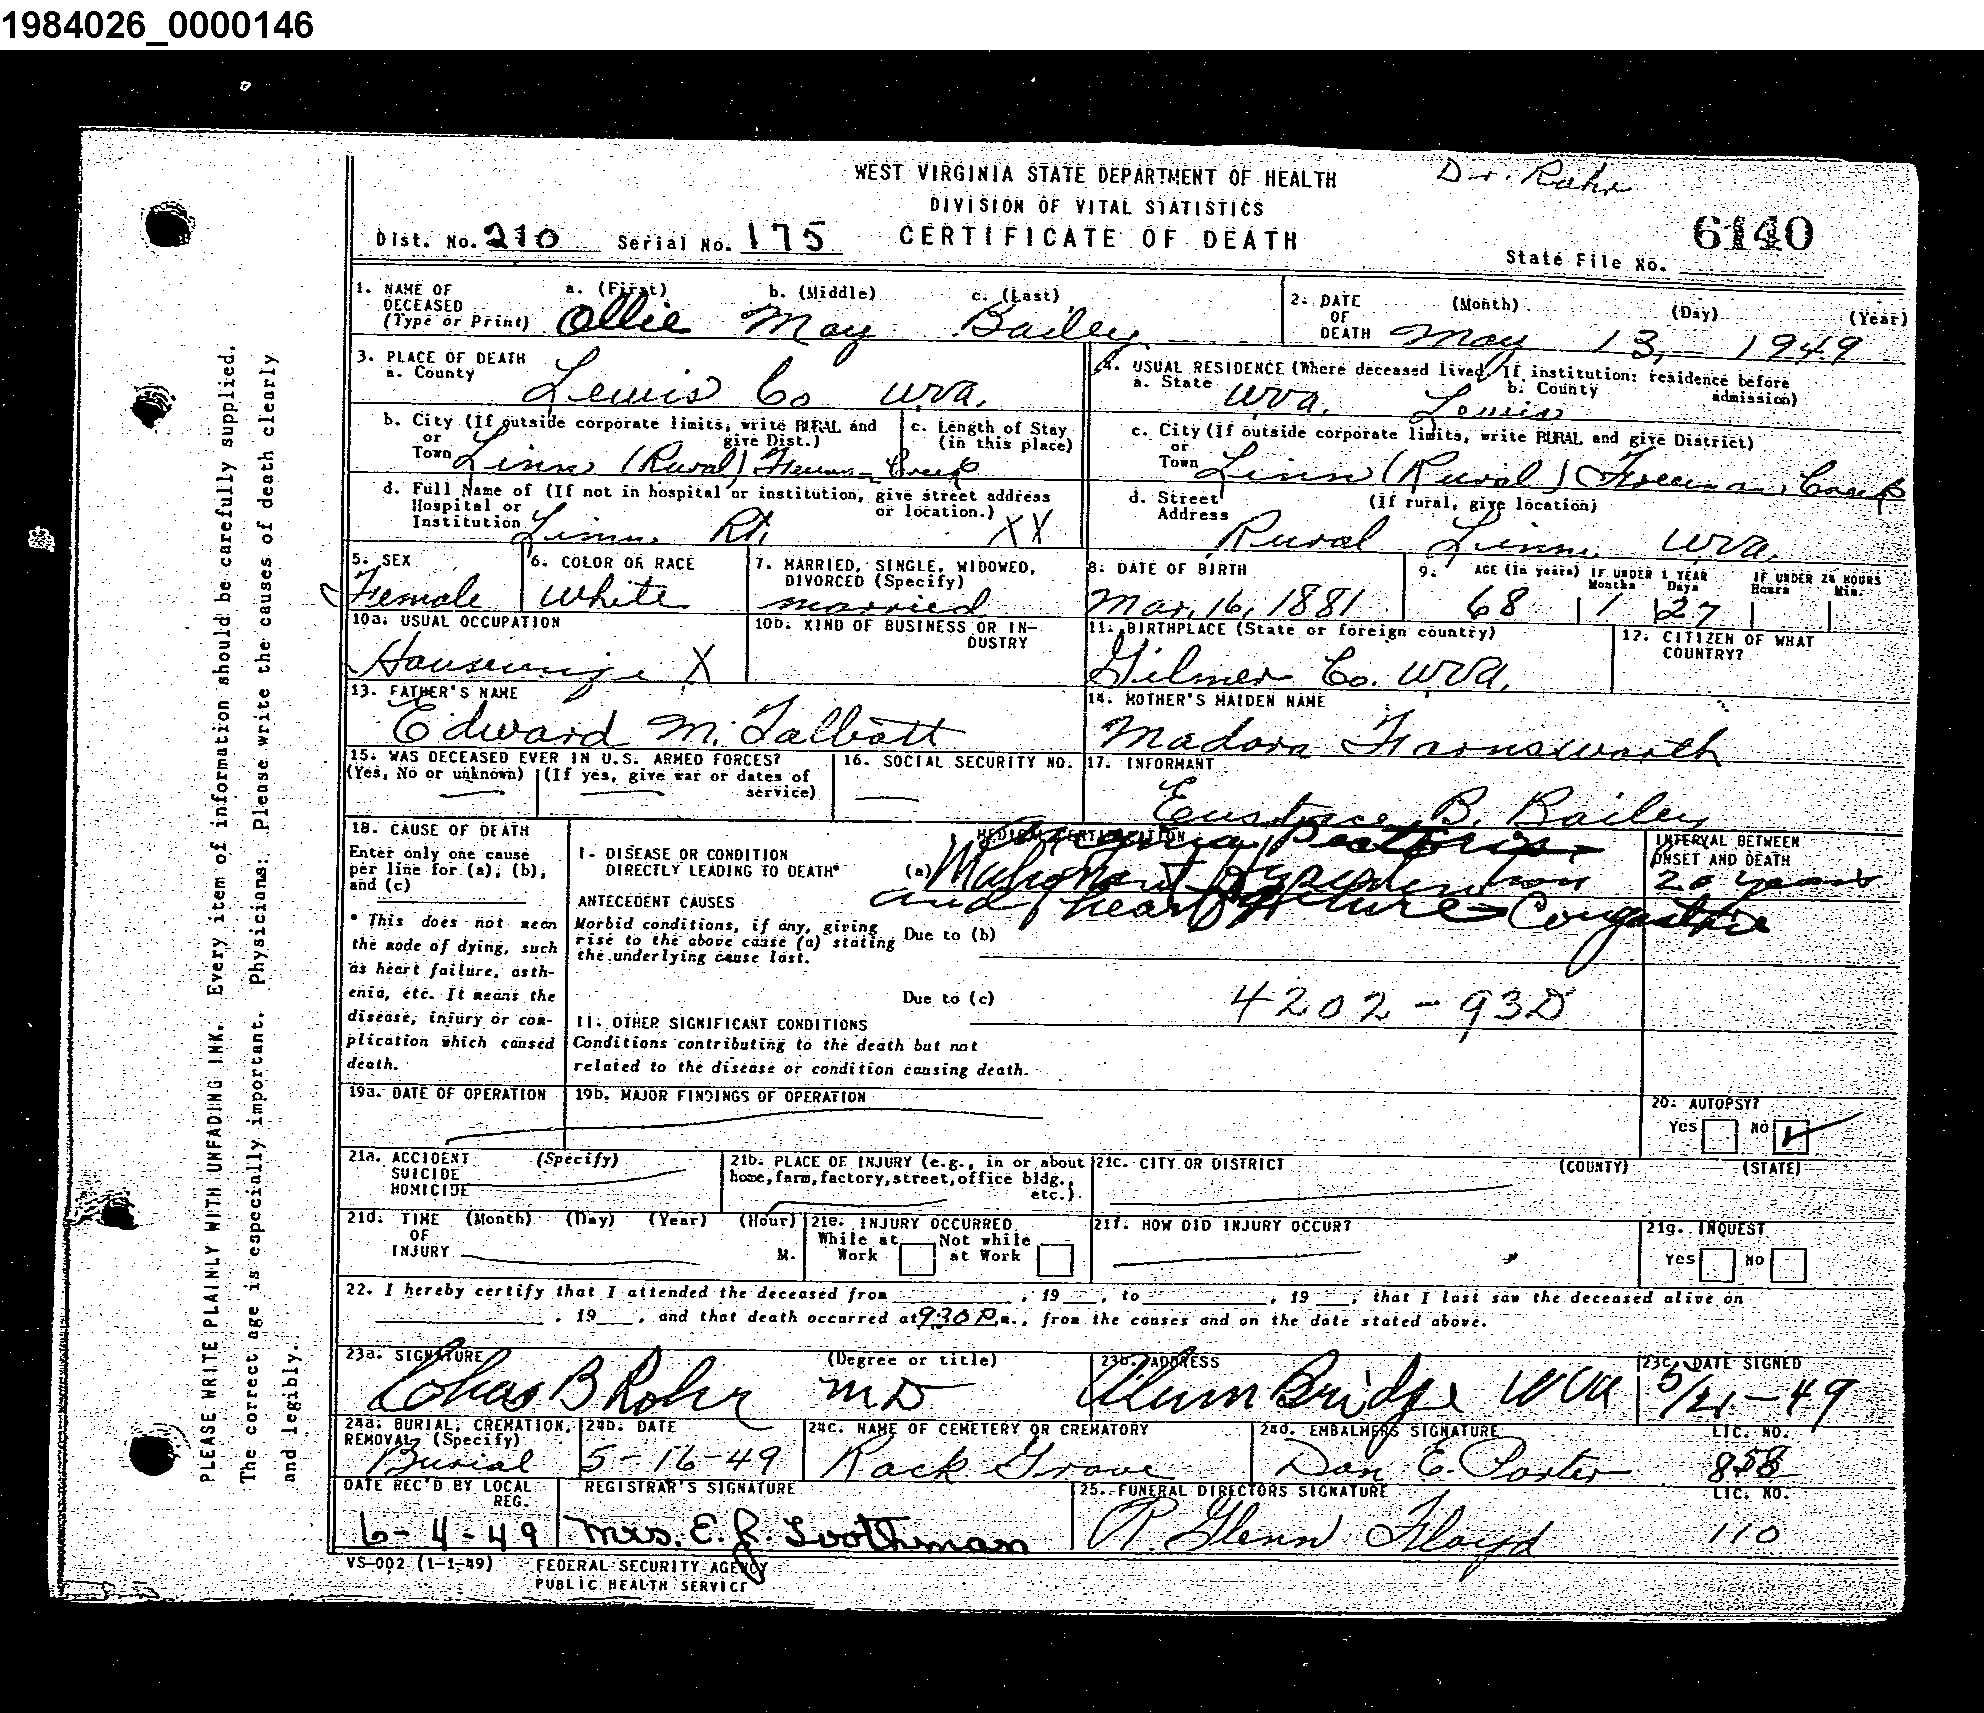 1984026_0000146
WEST VIRGINIA STATE DEPARTMENT OF HEALTH Dr. Rohr
DIVISION OF VITAL STATISTICS
Dist. No. 210 Serial No. 175 CERTIFICATE OF DEATH 6140
State File No.
1. NAME OF DECEASED (Type or Print) a. (First) b. (Middle) c. (Last)
Ollie May Bailey
2. DATE OF DEATH (Month) (Day) (Year)
May 13, 1949
3. PLACE OF DEATH
a. County Lewis Co WVa.
4. USUAL RESIDENCE (Where deceased lived. If institution: residence before admission)
a. State WVa. b. County Lewis
b. City (If outside corporate limits, write RURAL and give Dist.)
or Town Linn (Rural) Creek
c. Length of Stay (in this place)
c. City (If outside corporate limits, write RURAL and give District)
or Town Linn (Rural) Freeman Creek
d. Full Name of (If not in hospital or institution, give street address or location.)
Hospital or Institution Linn Rt. XX
d. Street Address (If rural, give location)
Rural Linn WVa.
5. SEX
Female
6. COLOR OR RACE
White
7. MARRIED, SINGLE, WIDOWED, DIVORCED (Specify)
married
8. DATE OF BIRTH
Mar. 16, 1881
9. AGE (in years) IF UNDER 1 YEAR Months Days IF UNDER 24 HOURS Hours Min.
68 1 27
10a. USUAL OCCUPATION
Housewife X
10b. KIND OF BUSINESS OR INDUSTRY
11. BIRTHPLACE (State or foreign country)
Gilmer Co. WVa.
12. CITIZEN OF WHAT COUNTRY?
13. FATHER'S NAME
Edward M. Talbott
14. MOTHER'S MAIDEN NAME
Madora Farnsworth
15. WAS DECEASED EVER IN U.S. ARMED FORCES?
(Yes, No or unknown) (If yes, give war or dates of service)
16. SOCIAL SECURITY NO.
17. INFORMANT
Eustace B. Bailey
18. CAUSE OF DEATH
Enter only one cause per line for (a), (b), and (c)
* This does not mean the mode of dying, such as heart failure, asthenia, etc. It means the disease, injury or complication which caused death.
MEDICAL CERTIFICATION
I. DISEASE OR CONDITION DIRECTLY LEADING TO DEATH*
Angina Pectoris
(a) Malignant Hypertention
and heart failure Congestive
INTERVAL BETWEEN ONSET AND DEATH
20 years
ANTECEDENT CAUSES
Morbid conditions, if any, giving rise to the above cause (a) stating the underlying cause last.
Due to (b)
Due to (c)
4202 - 93D
II. OTHER SIGNIFICANT CONDITIONS
Conditions contributing to the death but not related to the disease or condition causing death.
19a. DATE OF OPERATION
19b. MAJOR FINDINGS OF OPERATION
20. AUTOPSY?
Yes No
21a. ACCIDENT SUICIDE HOMICIDE (Specify)
21b. PLACE OF INJURY (e.g., in or about home, farm, factory, street, office bldg., etc.)
21c. CITY OR DISTRICT (COUNTY) (STATE)
21d. TIME OF INJURY (Month) (Day) (Year) (Hour) M.
21e. INJURY OCCURRED
While at Work Not while at Work
21f. HOW DID INJURY OCCUR?
21g. INQUEST
Yes No
22. I hereby certify that I attended the deceased from , 19 , to , 19 , that I last saw the deceased alive on
, 19 , and that death occurred at 930 P m., from the causes and on the date stated above.
23a. SIGNATURE (Degree or title)
Chas B Rohr MD
23b. ADDRESS
Alum Bridge WVa
23c. DATE SIGNED
5/21-49
24a. BURIAL, CREMATION, REMOVAL (Specify)
Burial
24b. DATE
5-16-49
24c. NAME OF CEMETERY OR CREMATORY
Rock Grove
24d. EMBALMERS SIGNATURE LIC. NO.
Dan E. Porter 858
DATE REC'D BY LOCAL REG.
6-4-49
REGISTRAR'S SIGNATURE
Mrs. E. J. Toothman
25. FUNERAL DIRECTORS SIGNATURE LIC. NO.
R. Glenn Floyd 110
VS-002 (1-1-49) FEDERAL SECURITY AGENCY
PUBLIC HEALTH SERVICE
PLEASE WRITE PLAINLY WITH UNFADING INK. Every item of information should be carefully supplied.
The correct age is especially important. Physicians: Please write the causes of death clearly
and legibly.